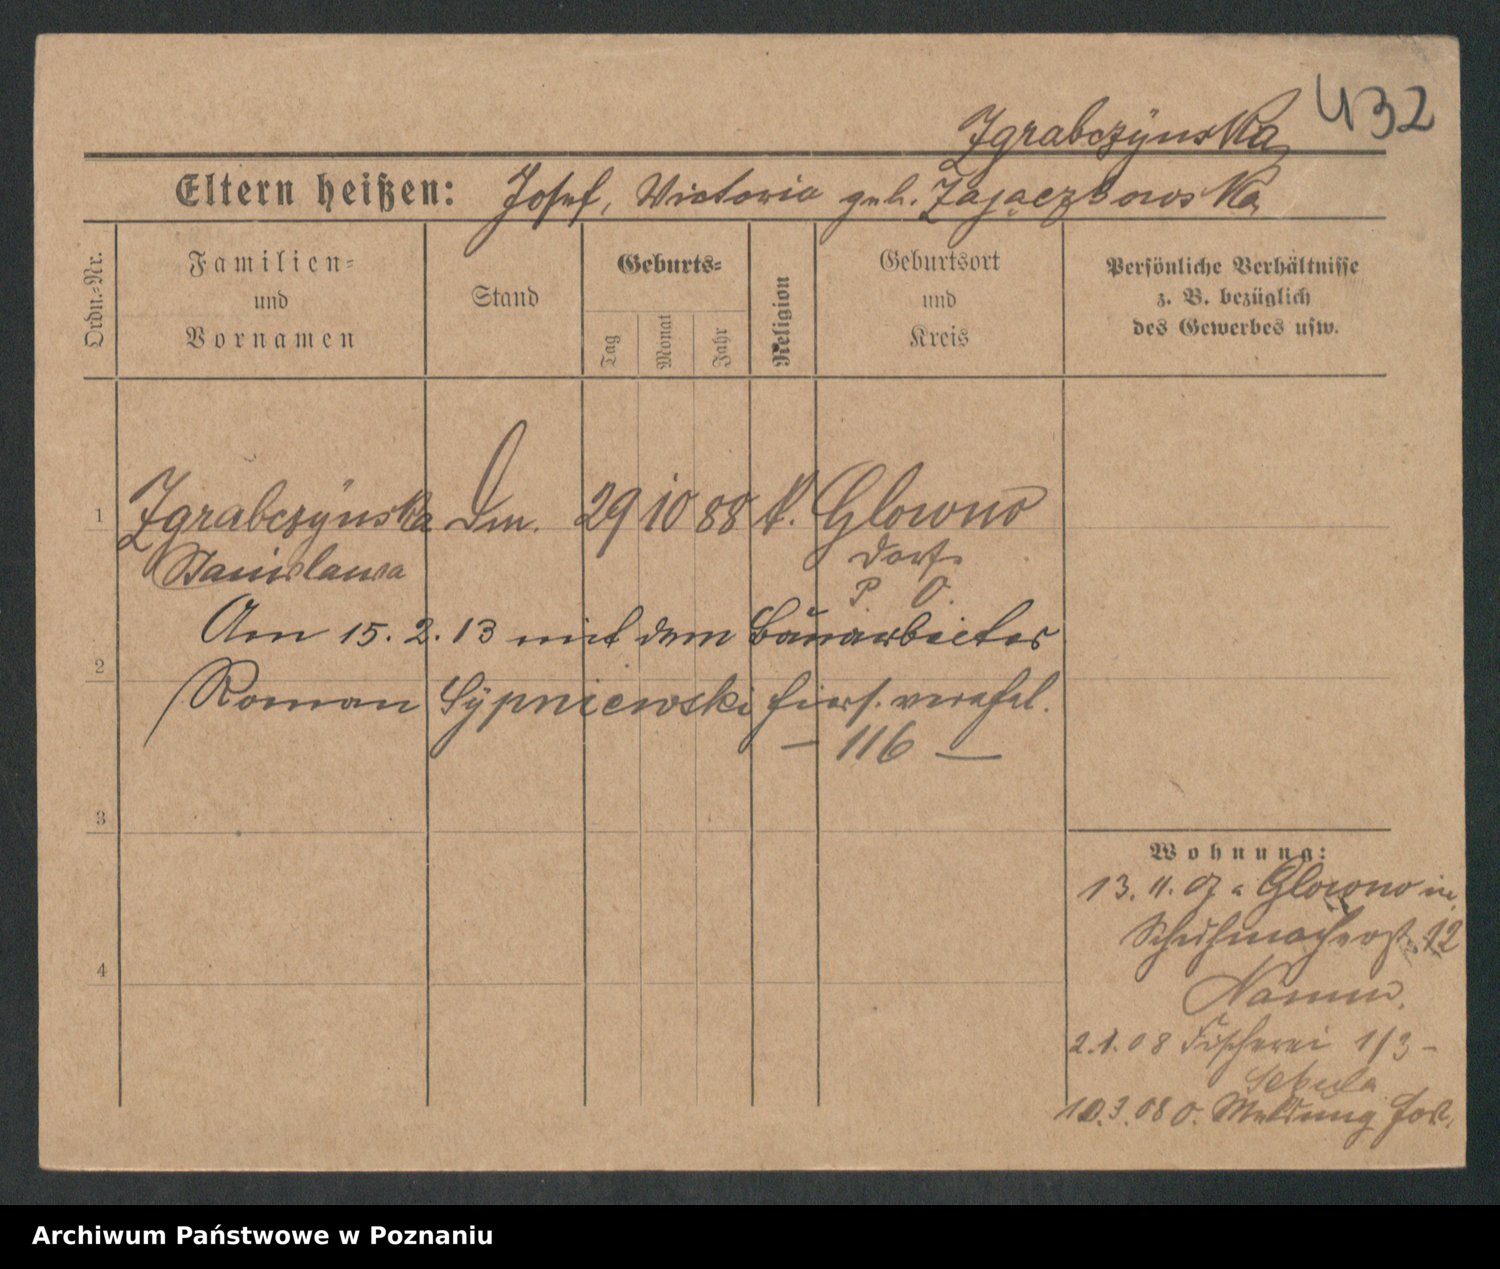 432
Zgrabczÿnska
Eltern heißen: Josef, Victoria geb. Zajączkowska
Ordn.-Nr.
Familien-
und
Vornamen
Stand
Geburts-
Tag
Monat
Jahr
Religion
Geburtsort
und
Kreis
Persönliche Verhältnisse
z. B. bezüglich
des Gewerbes usw.
1 Zgrabczÿnska Dm. 29 10 88 k. Glowno
Stanislawa Dorf
P. O.
Am 15. 2. 13 mit dem Bauarbeiter
2
Roman Sÿpniewski hiers. verehel.
— 116 —
3
4
Wohnung:
13. 11. 07 Glowno in
Schuhmacherst. 12
2.1.08 Fischerei 1/3 -
10.3.08 o. Meldung fort.